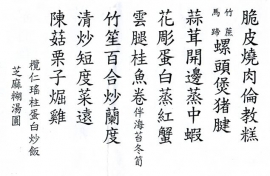 脆皮燒肉倫教糕
竹莖
馬蹄
螺頭煲猪腱
蒜茸開邊蒸中蝦
花彫蛋白蒸紅蟹
雲腿桂魚卷伴海苔冬筍
竹笙百合炒蘭度
清炒短度菜遠
陳菇栗子焗雞
欖仁瑤柱蛋白炒飯
芝麻糊湯圓